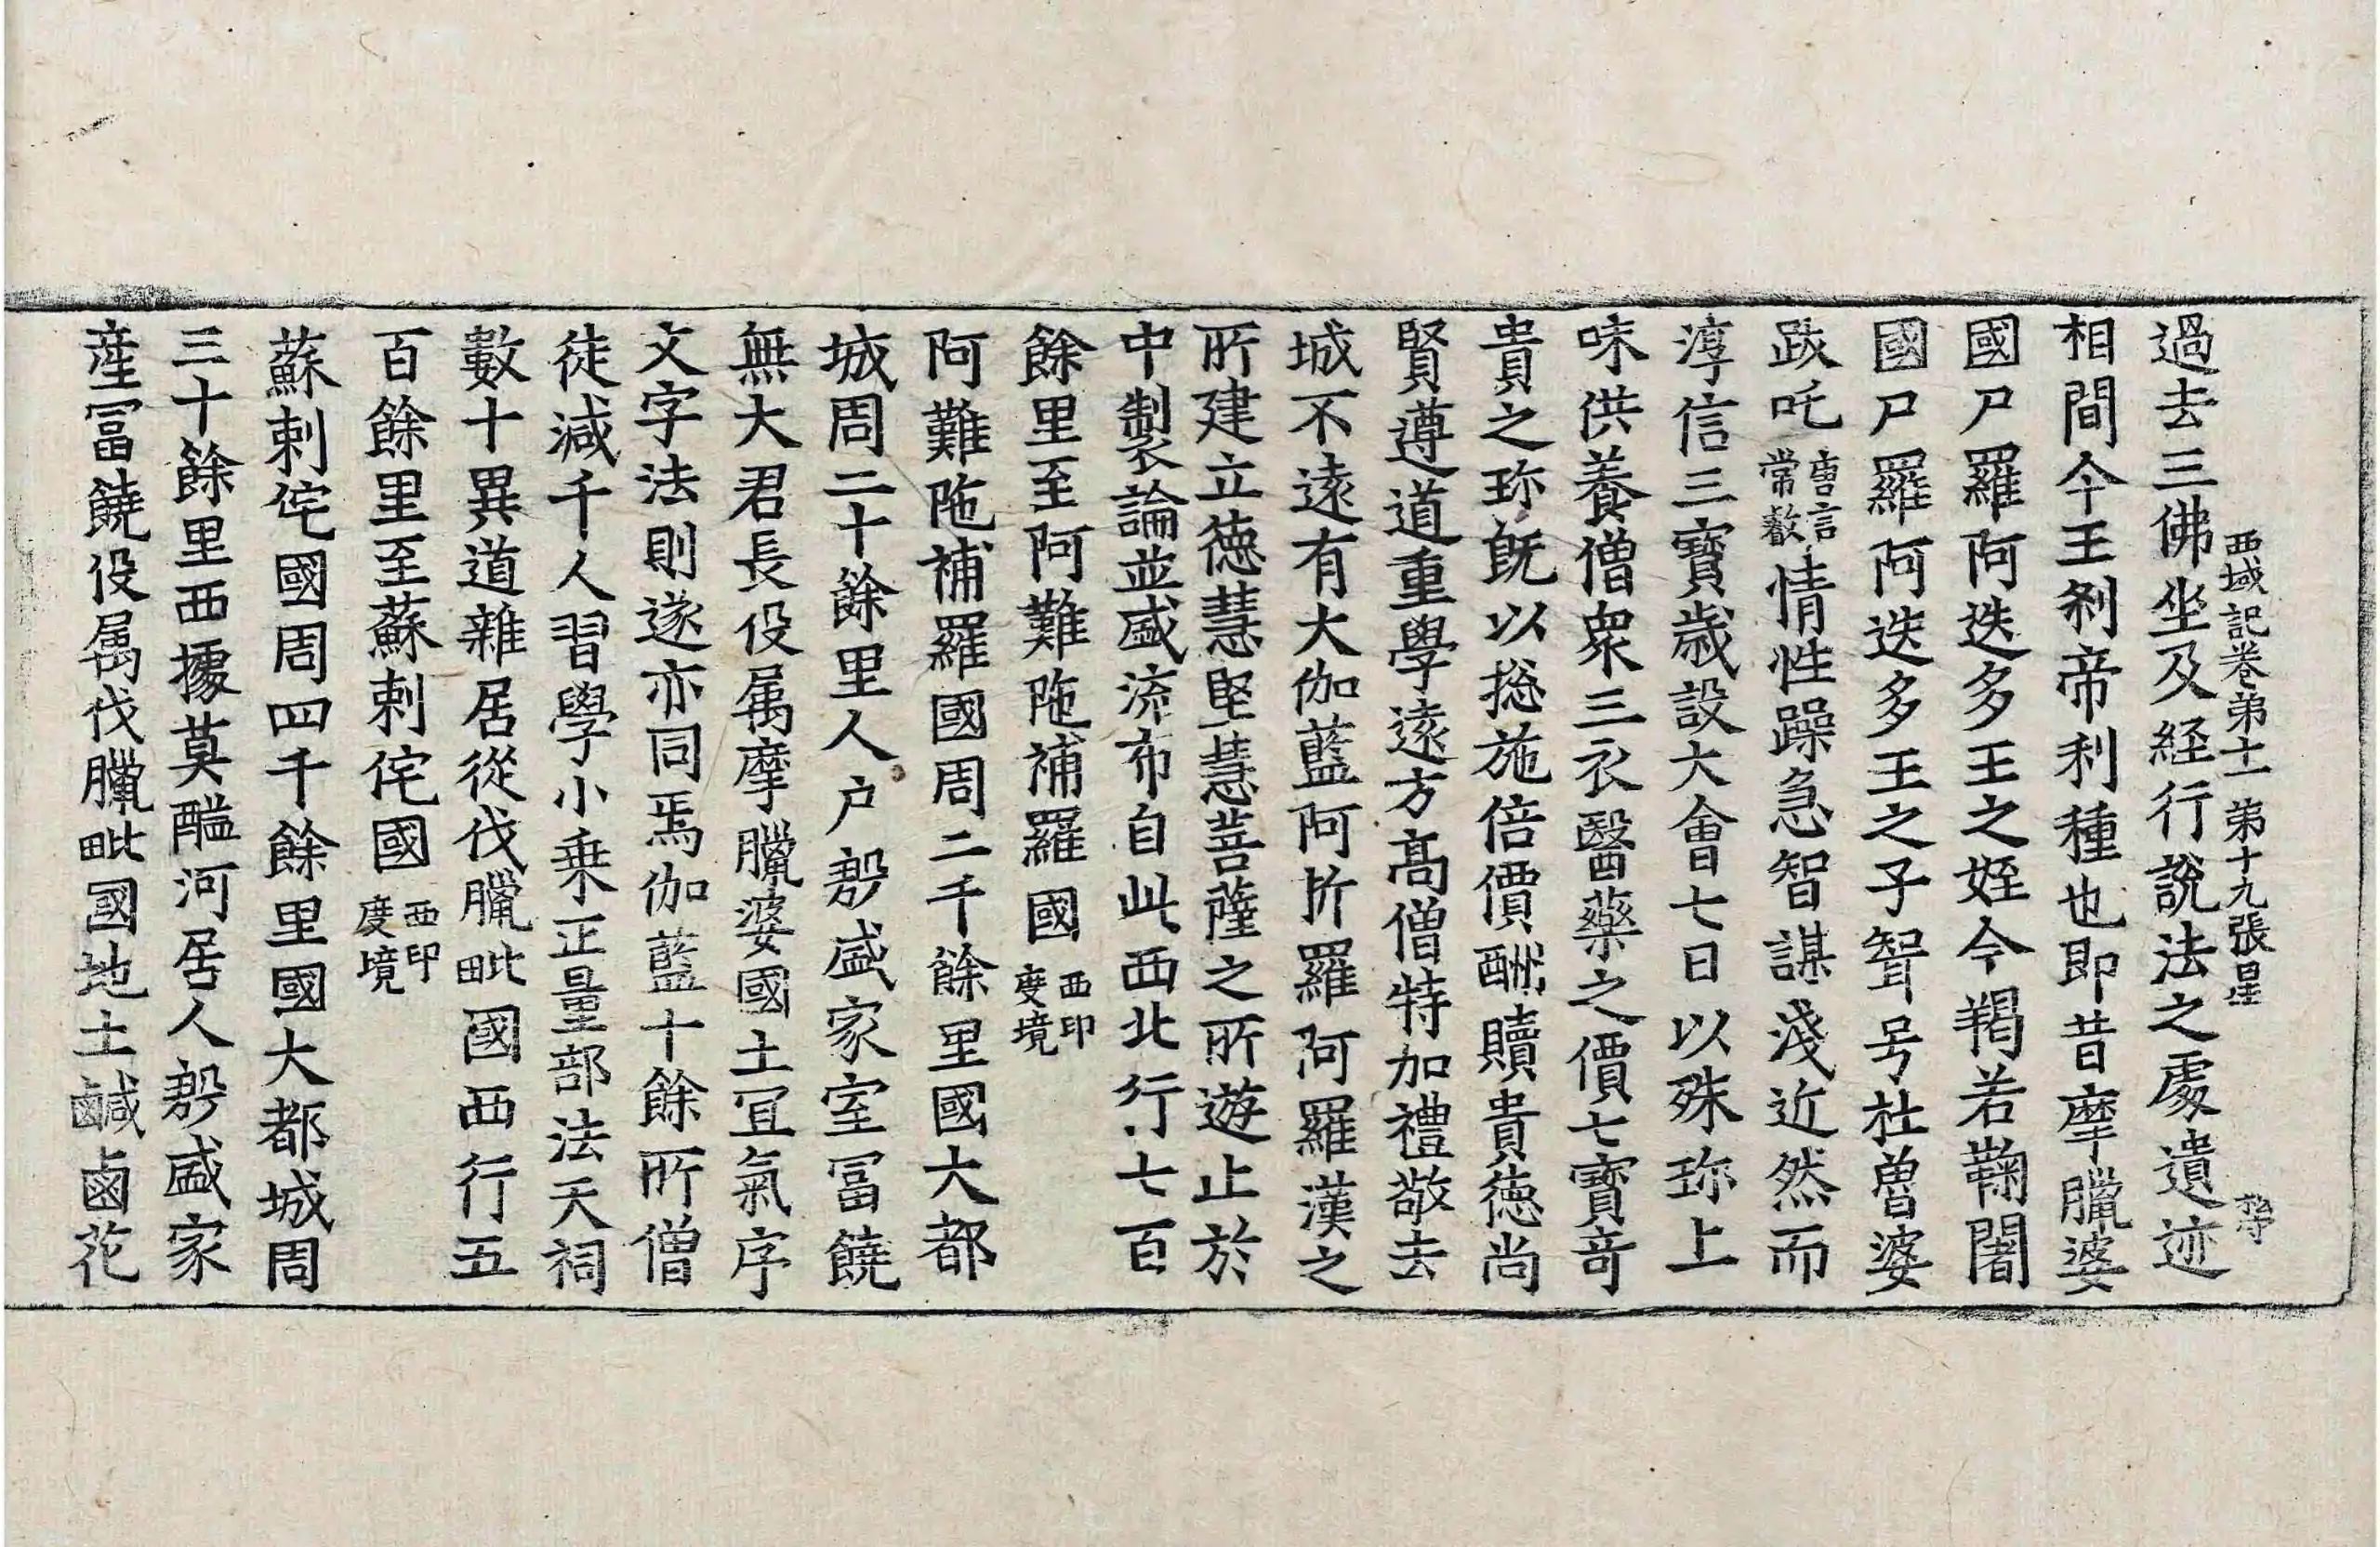 西域記卷第十一 第十九張 星
過去三佛坐及経行說法之處遺迹
相間今王刹帝利種也即昔摩臘婆
國尸羅阿迭多王之姪今羯若鞠闍
國尸羅阿迭多王之子聟号杜魯婆
跋吒唐言常叡情性躁急智謀淺近然而
淳信三寶歲設大會七日以殊珎上
味供養僧衆三衣醫藥之價七寶竒
貴之珎旣以捴施倍價酬贖貴德尚
賢遵道重學逺方髙僧特加禮敬去
城不逺有大伽藍阿折羅阿羅漢之
所建立德慧堅慧菩薩之所遊止於
中製論並盛流布自此西北行七百
餘里至阿難陁補羅國西印度境
阿難陁補羅國周二千餘里國大都
城周二十餘里人户郣盛家室冨饒
無大君長役属摩臘婆國土冝氣序
文字法則遂亦同焉伽藍十餘所僧
徒减千人習學小乗正量部法天祠
數十異道雜居從伐臘毗國西行五
百餘里至蘇剌侘國西印度境
蘇剌侘國周四千餘里國大都城周
三十餘里西據莫醯河居人郣盛家
産冨饒役属伐臘毗國地土鹹鹵花